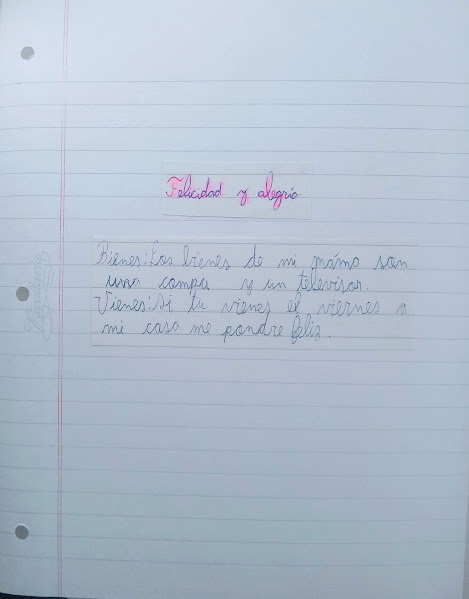 Felicidad y alegria.
Bienes:Los bienes de mi mámo son
una compu y un televisor.
Vienes:Si tu vienes el viernes a
mi casa me pondre feliz.